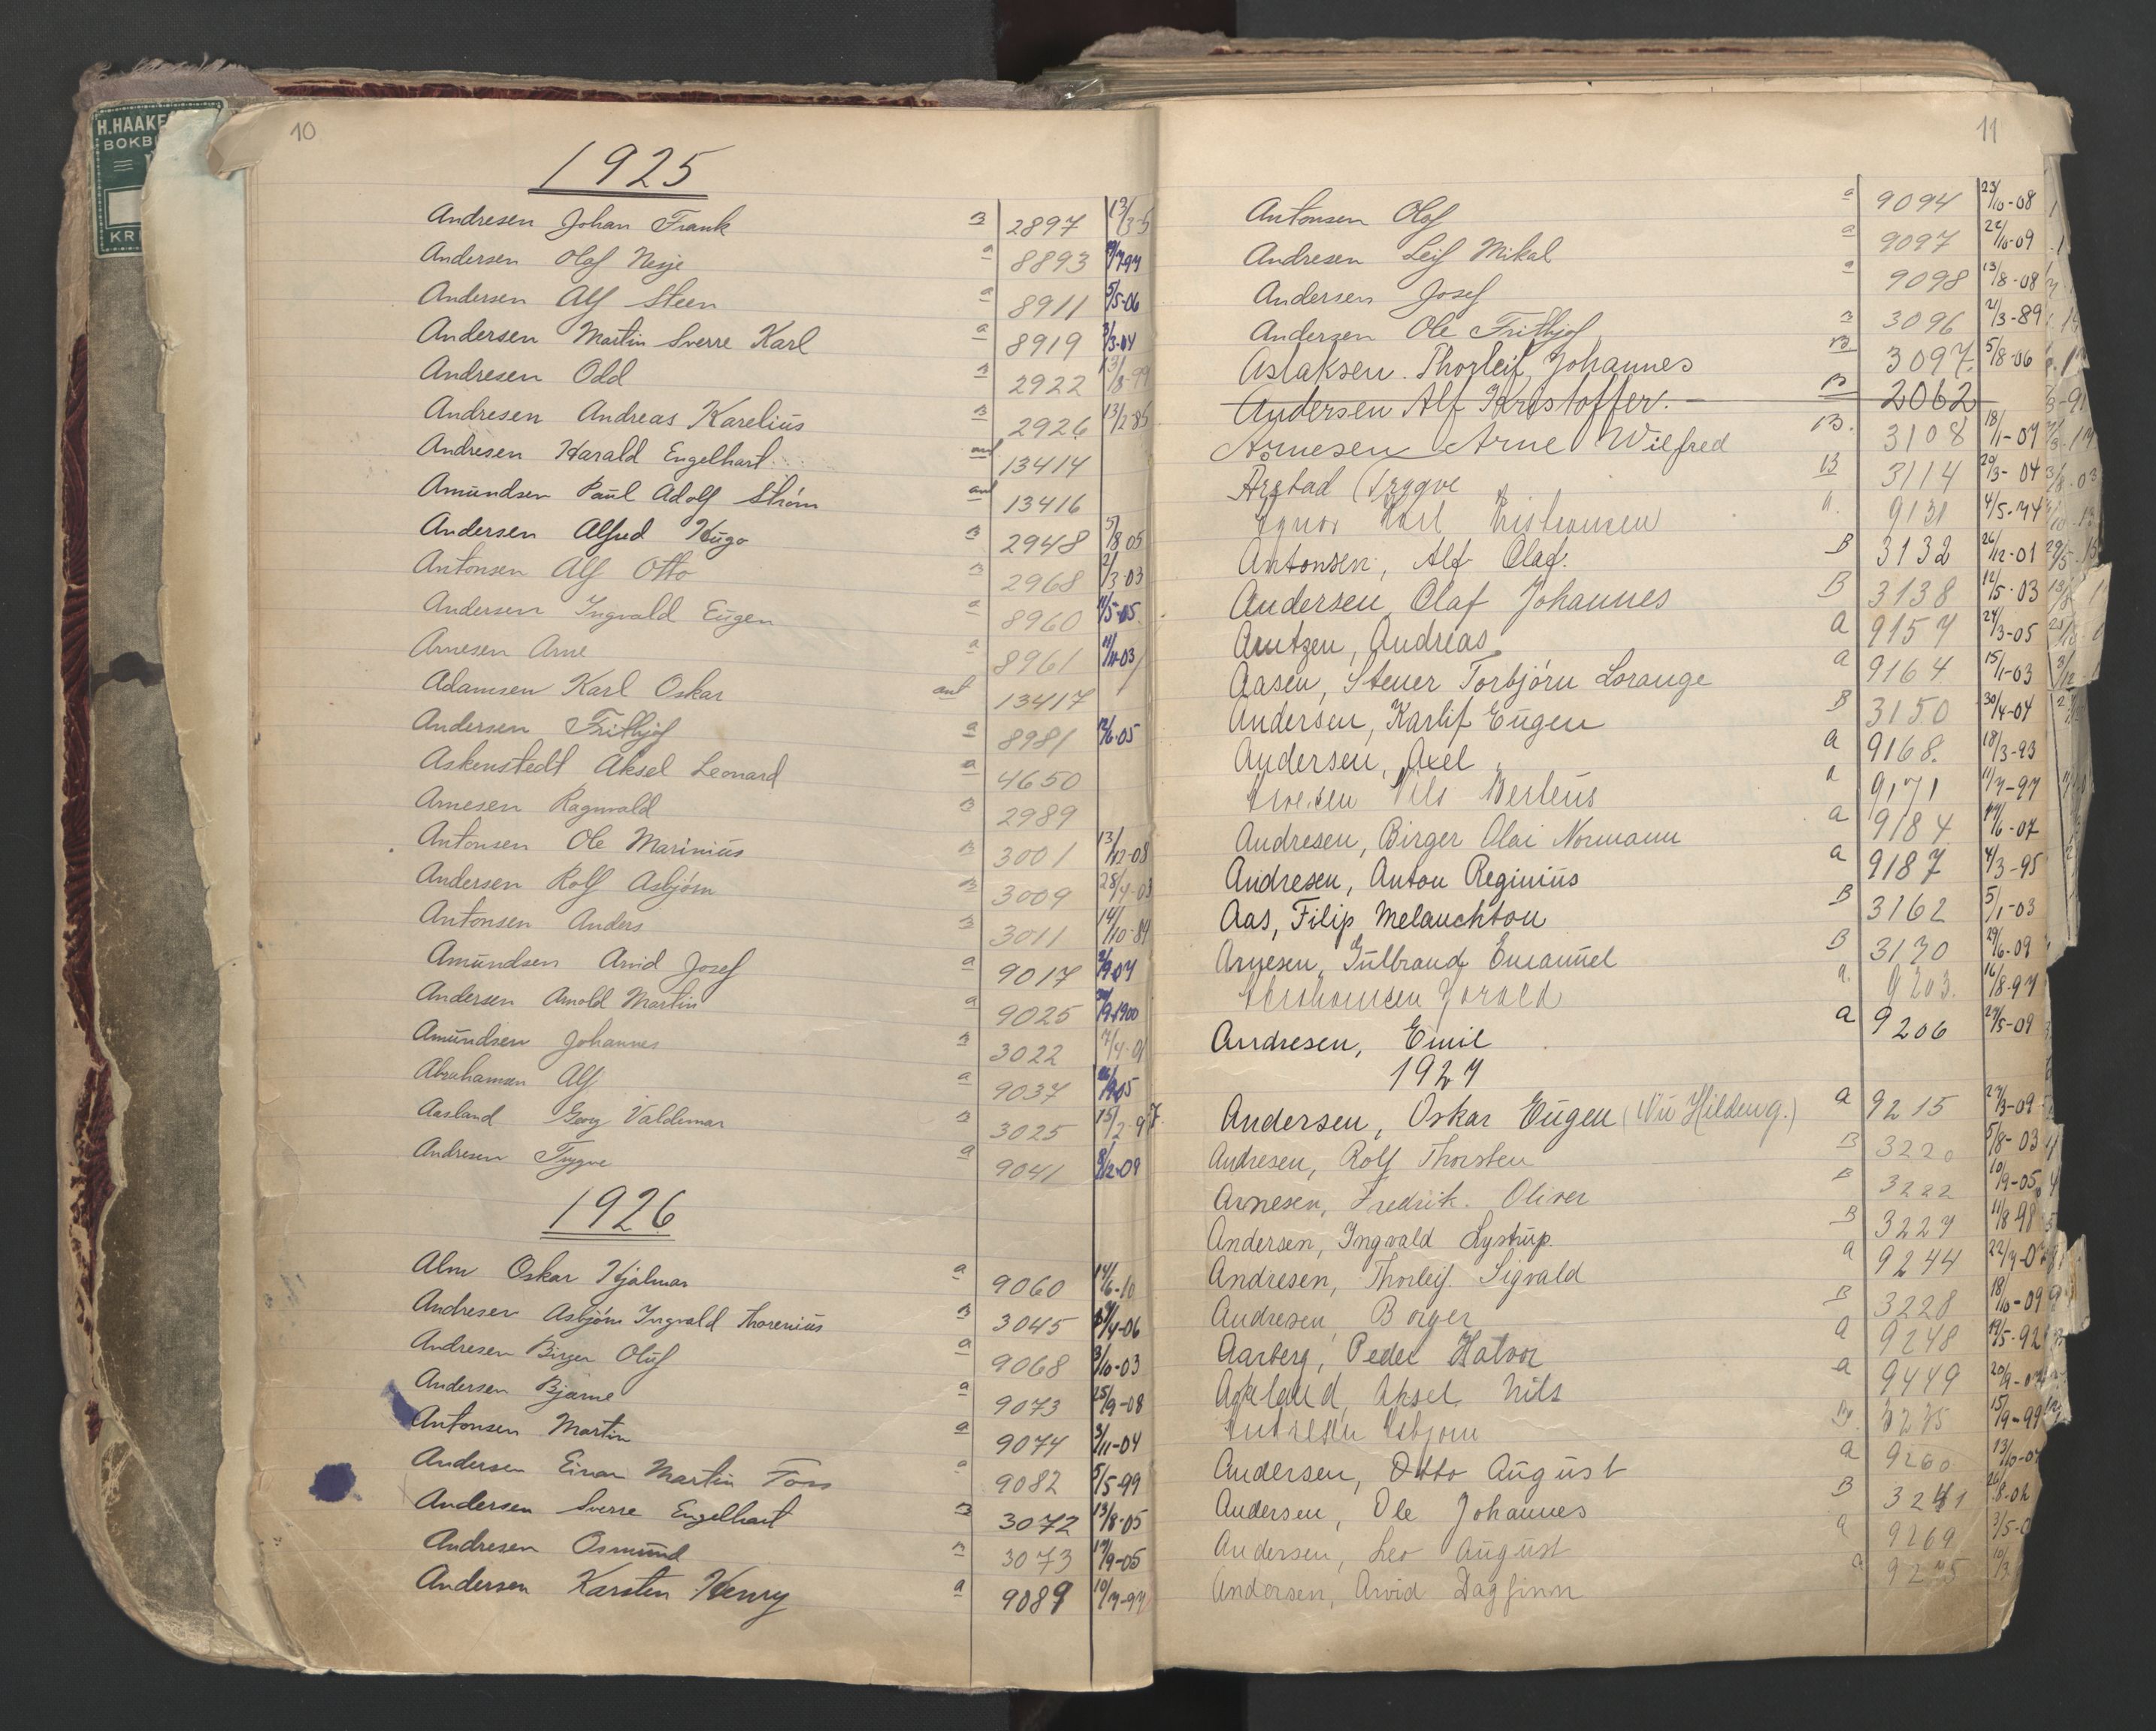 H. HAAKE
BOKBI
KRI
10
1925
Andresen Johan Frank B 2897 13/3-
Andersen Olaf Nesje a 8893
Andersen Alf Steen a 8911 5/5-06
Andersen Martin Sverre Karl a 8919 3/3-04
Andresen Odd B 2922 13/8-99
Andresen Andreas Karelius B 2926 13/2-85
Andresen Harald Engelhart ant 13414
Amundsen Paul Adolf Strøm ant 13416
Andersen Alfred Hugo B 2948 5/8 05
Antonsen Alf Otto B 2968 2/3-03
Andersen Ingvald Eugen a 8960 11/5-05
Arnesen Arne a 8961 11/11-03
Adamsen Karl Oskar ant 13417
Andersen Frithjof a 8981 12/6-05
Askenstedt Aksel Leonard a 4650
Arnesen Ragnvald B 2989
Antonsen Ole Marinius B 3001 13/12-08
Andersen Rolf Asbjørn B 3009 28/4-03
Antonsen Anders B 3011 14/10-89
Amundsen Arvid Josef a 9017
Andersen Arnold Martin a 9025
Amundsen Johannes B 3022
Abrahamsen Alf a 9037
Aasland Georg Valdemar B 3025 15/2-97
Andresen Trygve a 9041 8/12-09
1926
Alm Oskar Hjalmar a 9060 14/6-10
Andresen Asbjørn Ingvald Thorenius B 3045
Andresen Birger Oluf a 9068 3/10-03
Andersen Bjarne a 9073 25/9-08
Antonsen Martin a 9074 3/11-04
Andersen Einar Martin Foss a 9082 5/5-99
Andersen Sverre Engelhart B 3072 13/8-05
Andresen Osmund B 3073 19/9-05
Andersen Karsten Henry a 9089 10/7-97
11
Antonsen Olaf a 9094 23/10-08
Andresen Leif Mikal a 9097 22/10-09
Andersen Josef a 9098 13/8-08
Andersen Ole Frithjof B 3096 2/3-89
Aslaksen Thorleif Johannes B 3097 5/8-06
Andersen Alf Kristoffer. B 2062
Arnesen Arne Wilfred B. 3108 18/1-07
Arstad Trygve B 3114 20/3-04
Karl a. 9131 4/5-
Antonsen, Alf Olaf. B 3132 26/12-01
Andersen, Olaf Johannes B 3138 12/5-03
Arntzen, Andreas a 9157 24/3-05
Aasen, Stener Torbjørn Lorange a 9164 15/11-03
Andersen, Karlif Eugen B 3150 30/4-04
Andersen, Axel a 9168. 18/3-93
Nils Berteus a 9171 11/7-97
Andresen, Birger Olai Normann a 9184 14/6-07
Andresen, Anton Reginius a 9187 4/3-95
Aas, Filip Melanchton B 3162 5/1-03
Arnesen, Gulbrand Emanuel B 3170 29/6-09
a. 9203. 16/8-97
Andresen, Emil a 9206 27/5-09
1927
Andersen, Oskar Eugen (Nu Hildeng.) a 9215 27/3-09
Andresen, Rolf Thorsten B 3220 5/8-03
Arnesen, Fredrik. Oliver B 3222 10/9-05
Andersen, Ingvald Lystrup. B 3227 11/8 98
Andresen, Thorleif Sigvald a 9244
Andresen, Borger B 3228 18/10-09
Aarberg, Peder Halvor a 9248 19/5-92
Aksel Nils a 9449
Andresen Asbjørn B. 3235 15/9-99
Andersen, Otto August a 9260 13/10-07
Andersen, Ole Johannes B 3241
Andersen, Leo August a 9269 3/5-0
Andersen, Arvid Dagfinn a 9275 10/3